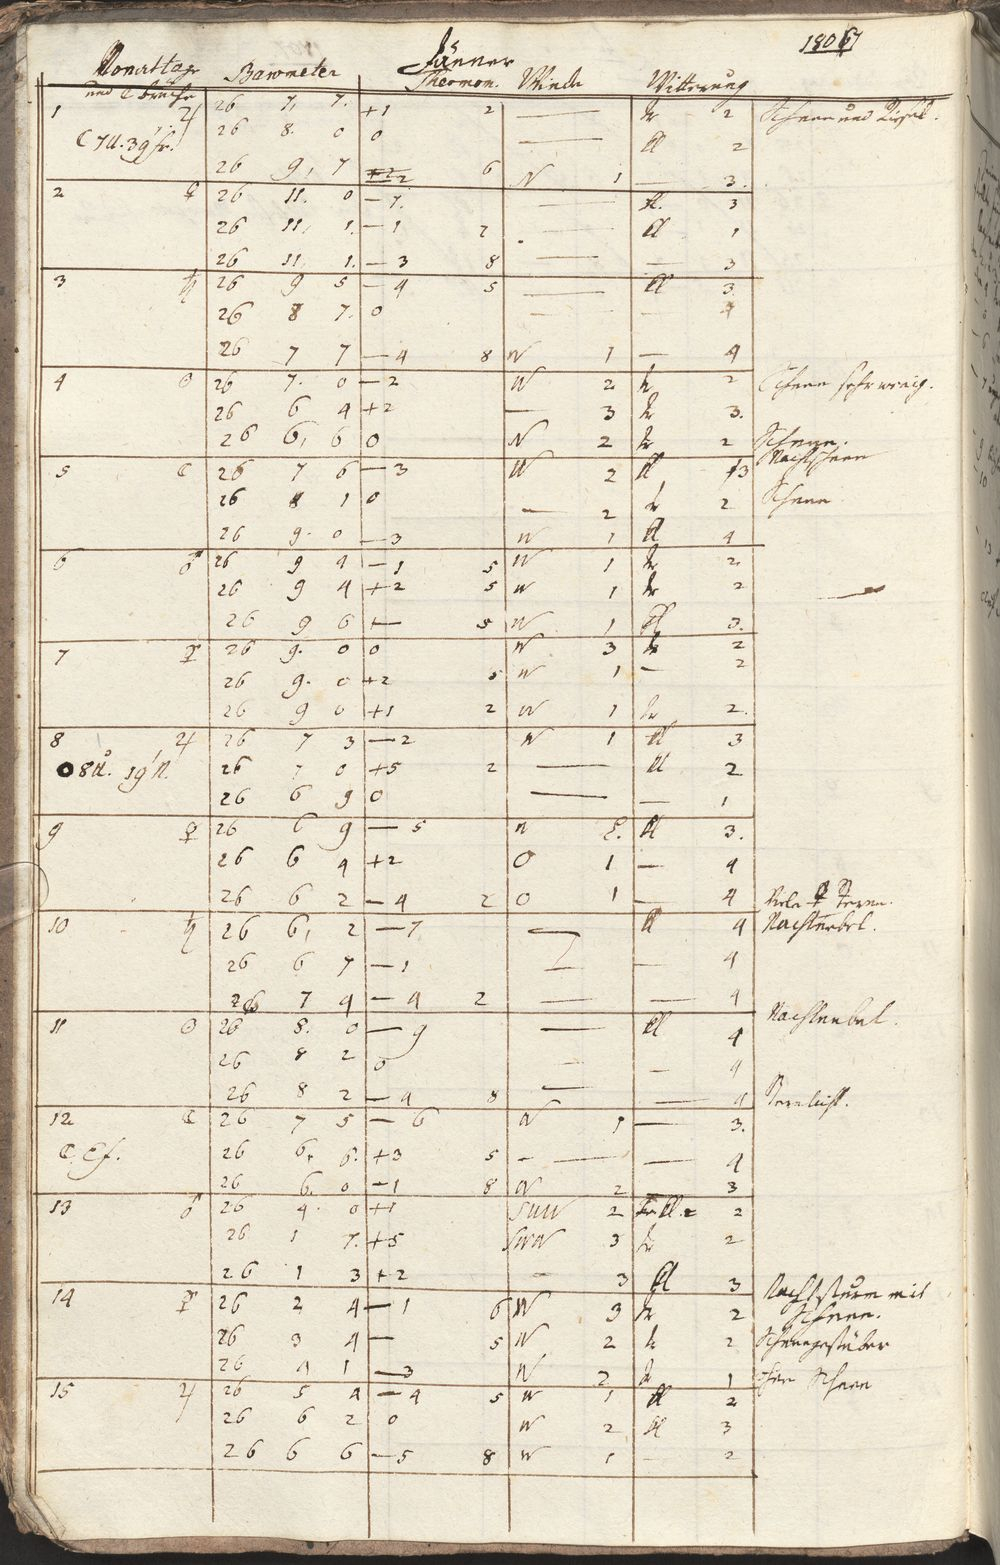 1807
Jänner
Monattage Barometer Thermom. Winde Witterung
und
1 ♃ 26 7, 7. +1 2 — tr 2 Schnee und
26 8. 0 0 — kl 2
26 9, 7 6 N 1 — 3.
2 ♀ 26 11. 0 — 1. — kl. 3
26 11, 1. — 1 2 — kl 1
26 11. 1. — 3 8 — — 3
3 ♄ 26 9 5 — 4 5 — kl 3.
26 8 7. 0 — — 4
26 7 7 — 4 8 W 1 — 4
4 ☉ 26 7. 0 — 2 W 2 tr 2 Schnee sehr wenig.
26 6 4 +2 — 3 tr 3.
26 6, 6 0 N 2 tr 2 Schnee.
Nachtschnee
5 ☾ 26 7 6 — 3 W 2 kl 3
26 8 1 0 — 2 tr 2 Schnee
26 9. 0 — 3 W 1 kl 4
6 ♂ 26 9 4 — 1 5 W 1 tr 2
26 9 4 +2 5 W 1 tr 2
26 9 6 5 W 1 kl 3.
7 ☿ 26 9. 0 0 W 3 tr 2
26 9. 0 +2 5 W 1 — 2
26 9 0 +1 2 W 1 tr 2.
8 ♃ 26 7 3 — 2 W 1 kl 3
26 7 0 +5 2 — kl 2
26 6 9 0 — — 1
9 ♀ 26 6 9 — 5 W kl 3.
26 6 4 +2 O 1 — 4
26 6 2 — 4 2 O 1 — 4
10 ♄ 26 6, 2 — 7 — kl 4 Nachtnebel.
26 6 7 — 1 — — 4
26 7 4 — 4 2 — — 4
11 ☉ 26 8. 0 — 9 — kl 4 Nachtnebel.
26 8 2 0 — — 4
26 8 2 — 4 8 — — 4
12 ☾ 26 7 5 — 6 W 1 — 3.
26 6, 6. +3 5 — — 4
26 6. 0 — 1 8 W 2 3
13 ♂ 26 4. 0 +1 SWW 2 2
26 1 7. +5 SWW 3 tr 2
26 1 3 +2 — 3 kl 3
14 ☿ 26 2 4 — 1 6 W 3 tr 2 Nachtsturm mit
Schnee.
26 3 4 — 5 W 2 tr 2 Schneegestöber
26 4 1 — 3 W 2 tr 1 Schnee
15 ♃ 26 5 4 — 4 5 W 1 kl 2
26 6 2 0 W 2 kl 3
26 6 6 — 5 8 W 1 — 2